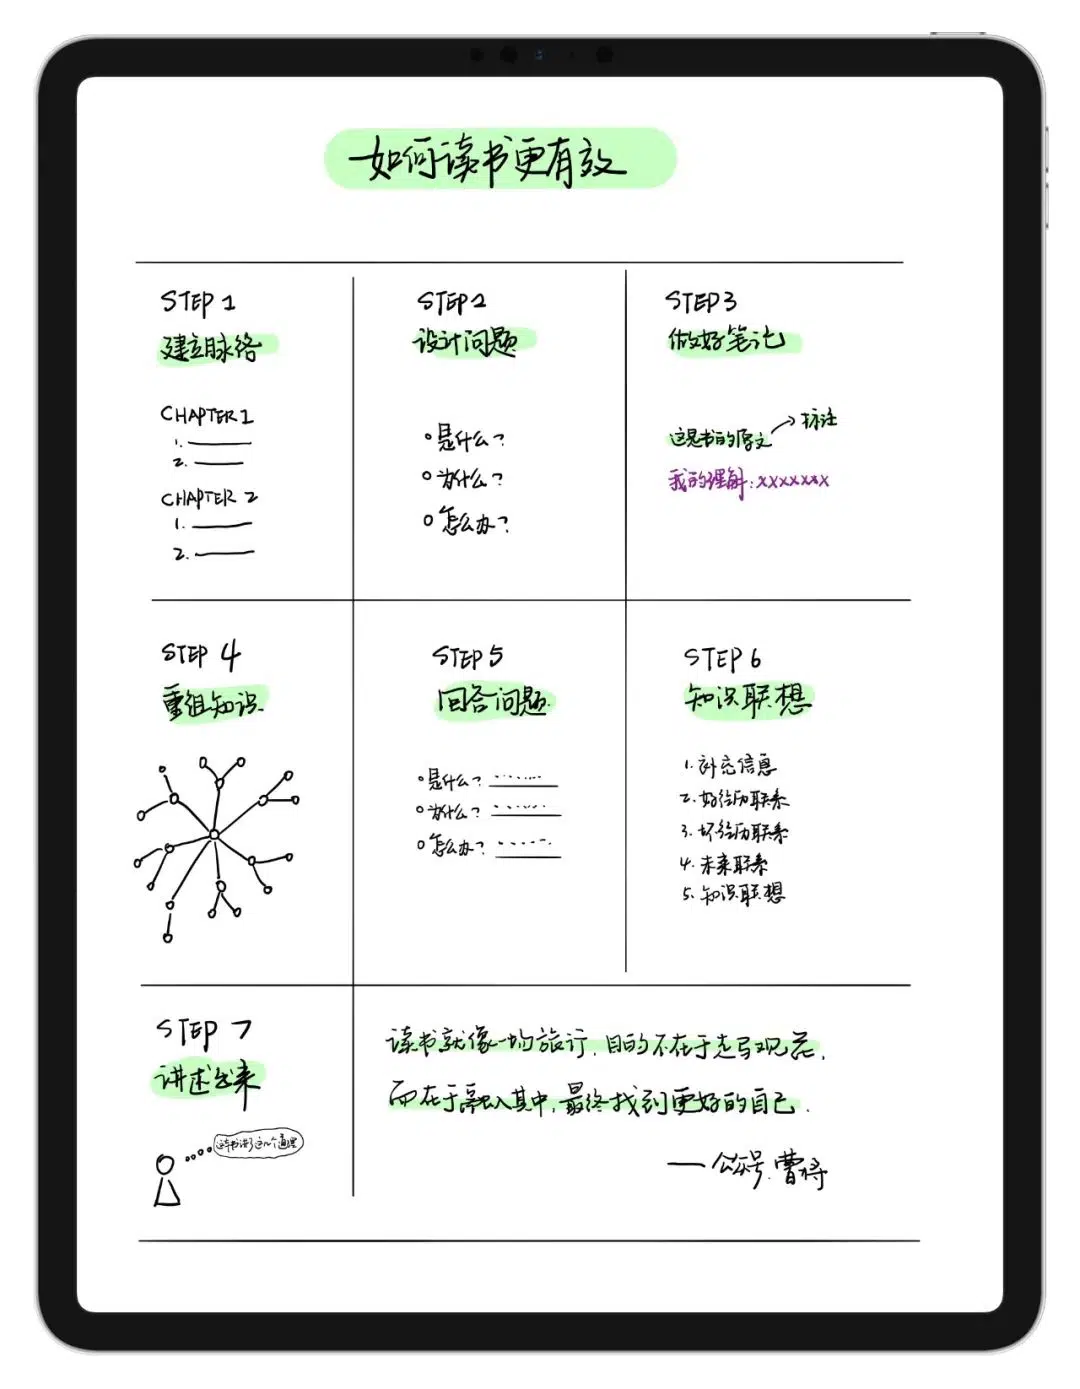 如何读书更有效
STEP 1
建立脉络
CHAPTER 1
1.
2.
CHAPTER 2
1.
2.
STEP 2
设计问题
是什么?
为什么?
怎么办?
STEP 3
做好笔记
这是书的原文 → 标注
我的理解:xxxxxxx
STEP 4
重组知识
STEP 5
回答问题
是什么?
为什么?
怎么办?
STEP 6
知识联想
1.补充信息
2.好经历联系
3.坏经历联系
4.未来联系
5.知识联想
STEP 7
讲述出来
这本书讲了这几个道理
读书就像一场旅行,目的不在于走马观花,
而在于融入其中,最终找到更好的自己.
—公众号:曹将